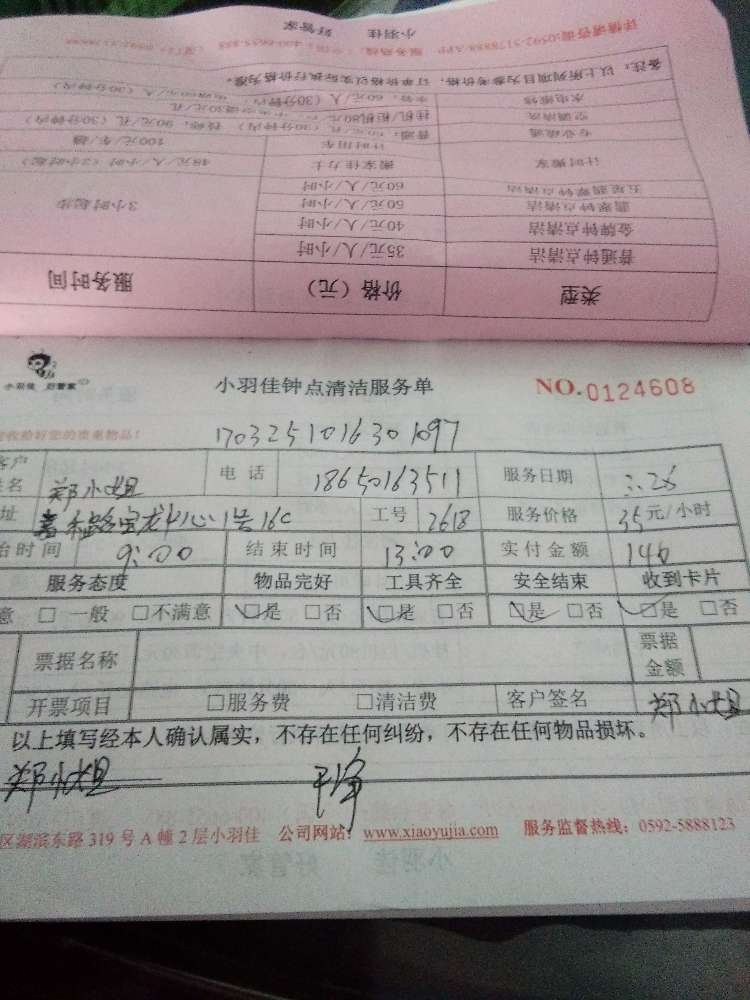 详情请咨询:0592-5178888 APP
小羽佳 好管家
备注：以上所列项目为参考价格，订单价格以实际执行价格为准。
水电维修
空调清洗
专业疏通
计时搬家 搬家佳力士 48元/人/小时（2小时起）
计时用车 100元/车/趟
五星翡翠钟点清洁 60元/人/小时
翡翠钟点清洁 50元/人/小时 3小时起步
金牌钟点清洁 40元/人/小时
普通钟点清洁 35元/人/小时
类型 价格（元） 服务时间
小羽佳 好管家
小羽佳钟点清洁服务单 NO.0124608
收拾好您的贵重物品！ 1703251016301097
客户 姓名 郑小姐 电话 18650163511 服务日期 3.26
址 嘉禾路宝龙中心1号16C 工号 2618 服务价格 35元/小时
始时间 9:00 结束时间 13:00 实付金额 140
服务态度 物品完好 工具齐全 安全结束 收到卡片
意 □一般 □不满意 □是 □否 □是 □否 □是 □否 □是 □否
票据名称 票据金额
开票项目 □服务费 □清洁费 客户签名 郑小姐
以上填写经本人确认属实，不存在任何纠纷，不存在任何物品损坏。
郑小姐 干净
区湖滨东路 319 号 A 幢 2 层小羽佳 公司网站：www.xiaoyujia.com 服务监督热线：0592-5888123